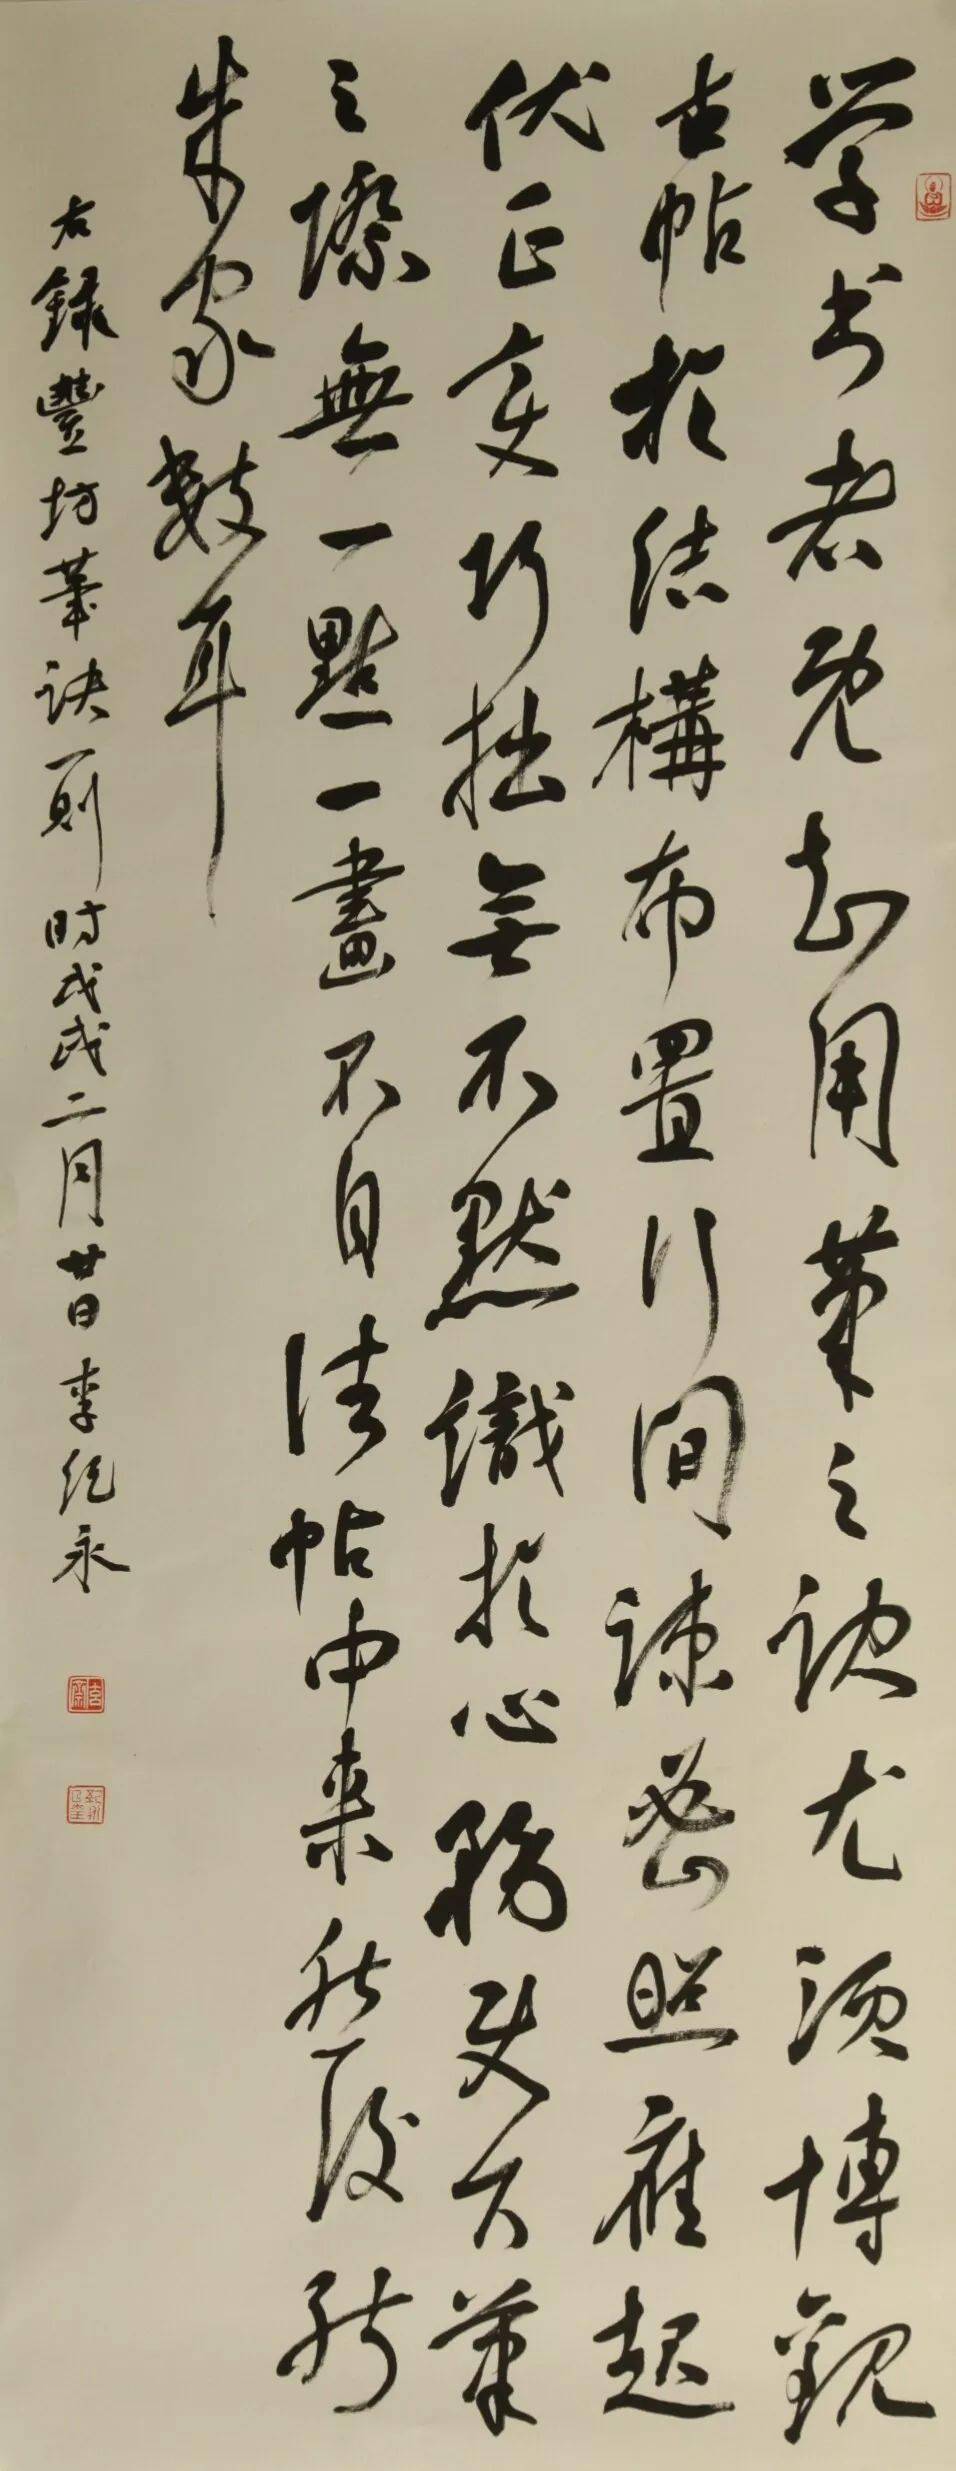 学书者既知用筆之訣尤须博觀
古帖於结構布置行间疎密照應起
伏正变巧拙無不默識於心務使下筆
之際無一點一畫不自法帖中来然後能
成家數耳
右録豐坊筆诀一则 时戊戌二月廿日 李纪永